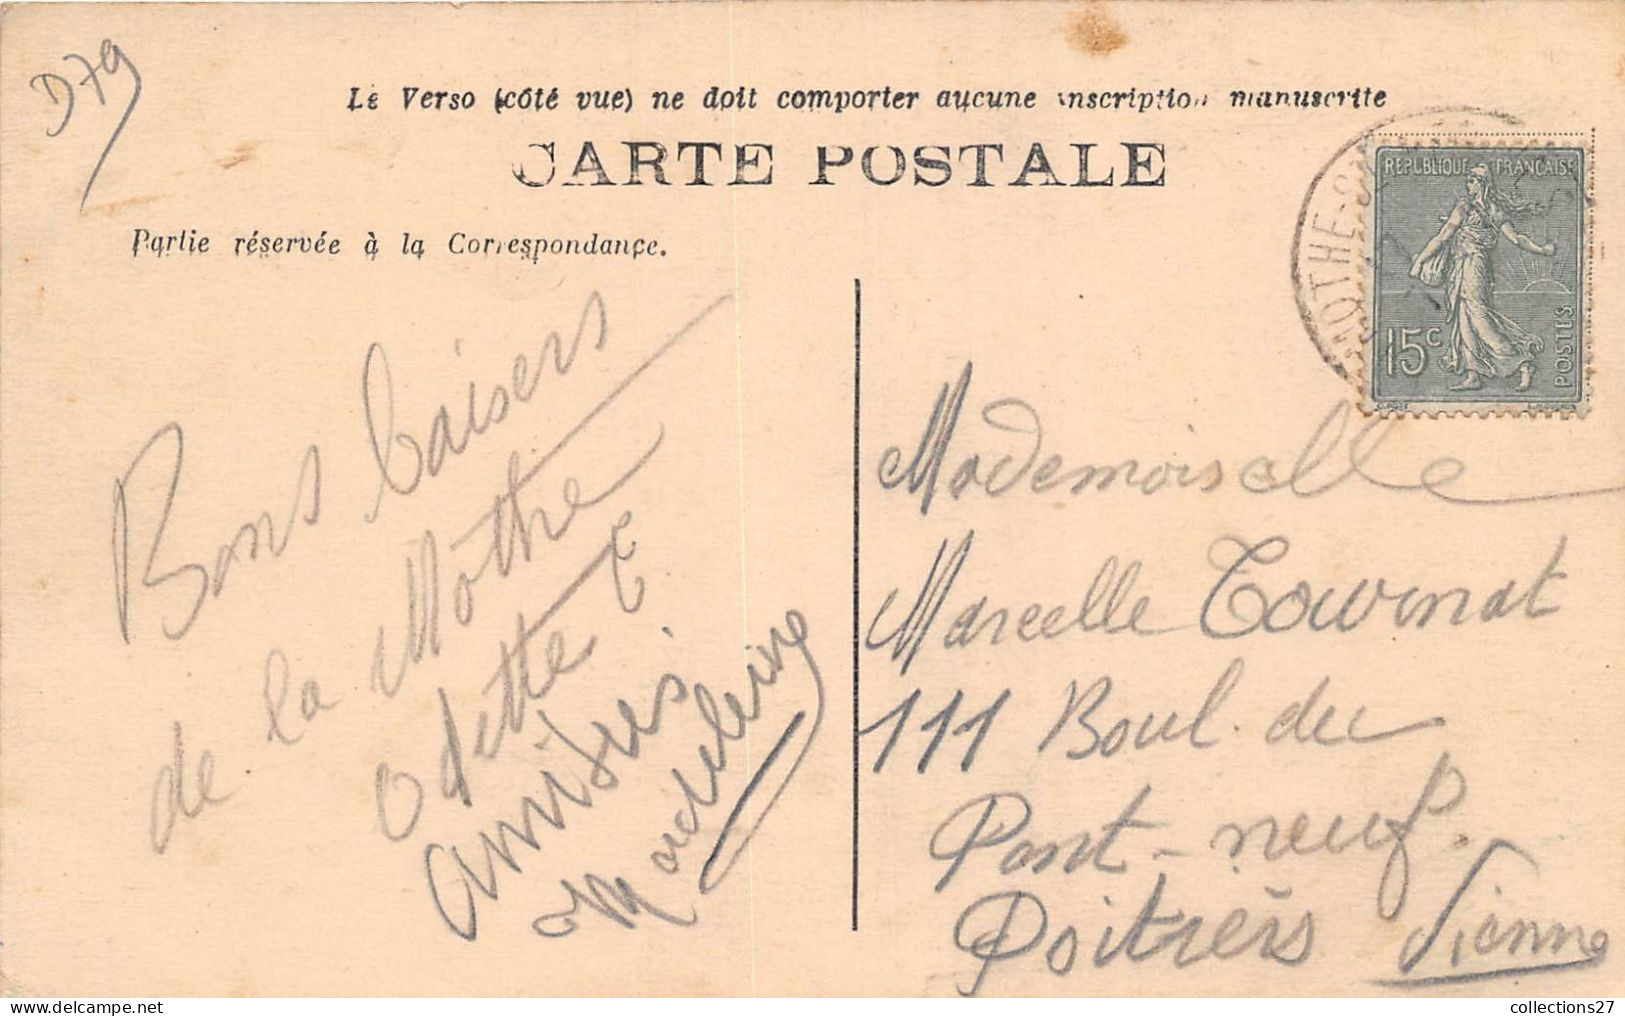 D79
Le Verso (côté vue) ne doit comporter aucune inscription manuscrite
CARTE POSTALE
Partie réservée à la Correspondance.
MOTHE-S
REPUBLIQUE FRANÇAISE
15c
POSTES
Bons baisers
de la Mothe
Odette
amitiés
Madeleine
Mademoiselle
Marcelle Tournat
111 Boul. du
Pont-neuf.
Poitiers Vienne
collections27